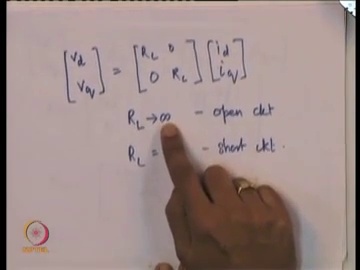 [v_d v_q] = [R_L 0 0 R_L] [i_d i_q]
R_L → ∞ - open ckt
R_L = - short ckt.
NPTEL